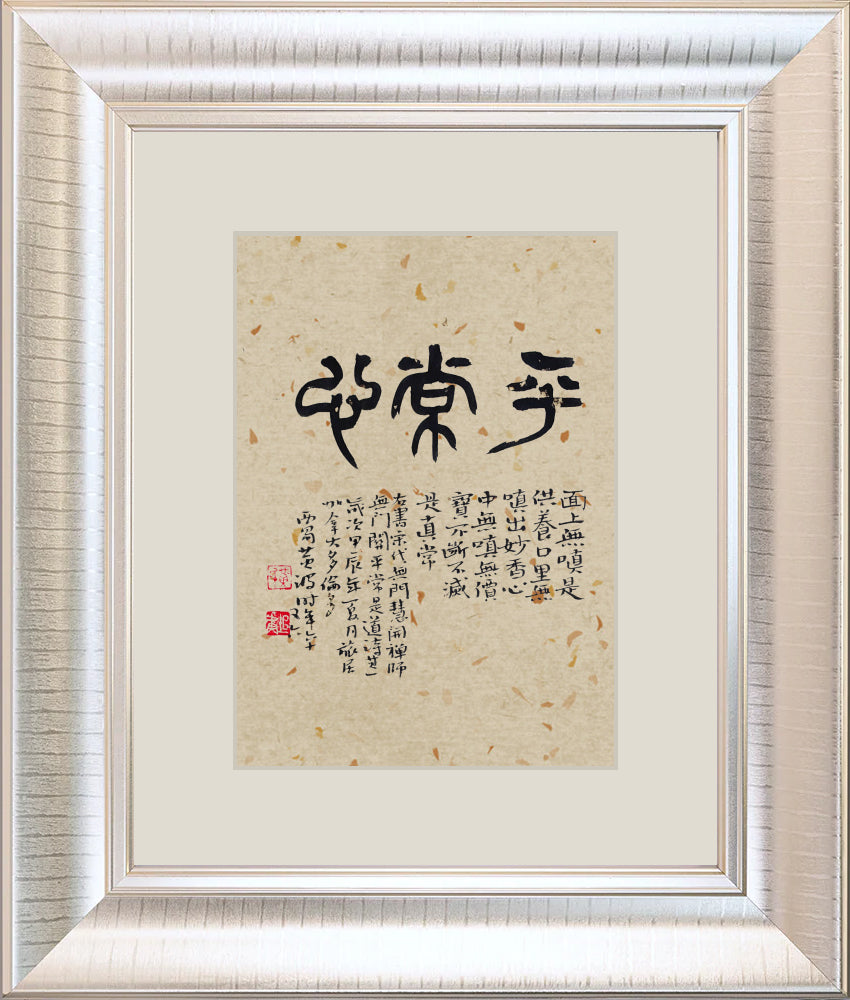 平常心
面上無嗔是
供養口里無
嗔出妙香心
中無嗔無價
寶不斷不滅
是真常
右書宋代無門慧開禪師
無門關平常是道詩其一
歲次甲辰年夏月旅居
加拿大多倫多
西蜀黃波時年六十
又六